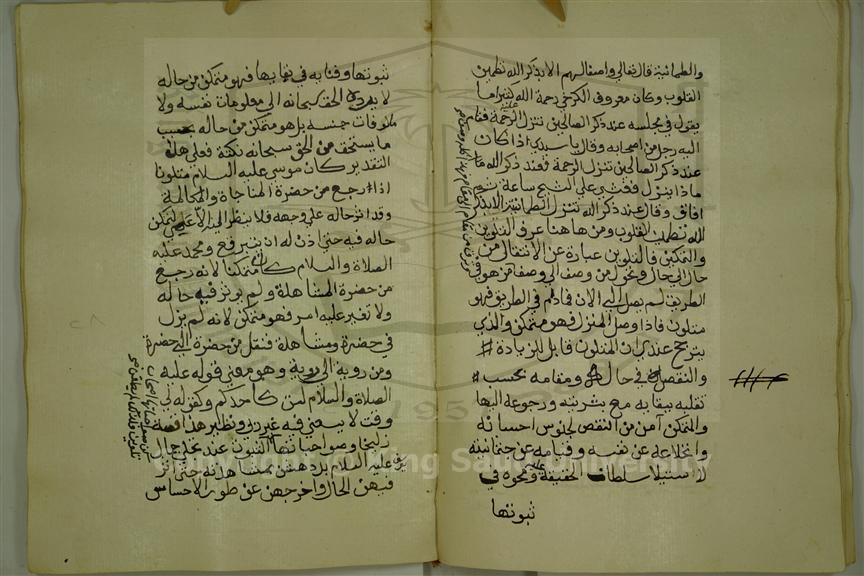 والطمانينة قال تعالى الا بذكر الله تطمين
القلوب وكان معروف الكرخي رحمة الله كثيرا ما
يقول في مجلسه عند ذكر الصالحين تنزل الرحمة فقام
اليه رجل من اصحابه وقال يا سيدي اذا كان
عند ذكر الصالحين تنزل الرحمة فعند ذكر الله
ماذا ينزل فغشي على الشيخ ساعة ثم
افاق وقال عند ذكر الله تنزل الطمانينة الا بذكر
الله تطمين القلوب ومن هاهنا عرف التلوين
والتمكين فالتلوين عبارة عن الانتقال من
حال الى حال وتحول من وصف الى وصف فمن هو في
الطريق لم يصل الى الان فمادام في الطريق فهو
متلون فاذا وصل المنزل فهو متمكن والذي
يترجح عندي ان المتلون قابل للزيادة
والنقص في حاله ومقامه بحسب
تقلبه ببقايه مع بشريته ورجوعه اليها
والمتمكن امن من النقص لجلوس احسانه
وانخلاعه عن نفسه وفنايه عن جثمانيته
لاستيلا سلطان الحقيقة عليه ومحوه في
ثبوتها
ثبوتها وفنايه في بقايها فهو متمكن من حاله
لا يرده الحق سبحانه الى معلومات نفسه ولا
مالوفات حسه بل هو متمكن من حاله بحسب
ما يستحق من الحق سبحانه نكتة فعلى هذا
التقدير كان موسى عليه السلام متلونا
اذا رجع من حضرة المناجاة والمكالمة
وقد اثر حاله على وجهه فلا ينظر اليه الا عمي لتمكن
حاله فيه حتى اذن له ان يتبرقع ومحمد عليه
الصلاة والسلام كان متمكنا لانه رجع
من حضرة المشاهدة ولم يوثر فيه حاله
ولا تغير عليه امر فهو متمكن لانه لم يزل
في حضرة ومشاهدة فنقل من حضرة الى حضرة
ومن روية الى روية وهو معنى قوله عليه
الصلاة والسلام لست كاحدكم وكقوله لي
وقت لا يسعني فيه غير ربي ونظير هذا قصة
زليخا وصواحباتها اللتيون عند تجلي جمال
يوسف عليه السلام بر دهشن بمشاهدته حتى اثر
فيهن الحال واخرجهن عن طور الاحساس
King Saud University
1957